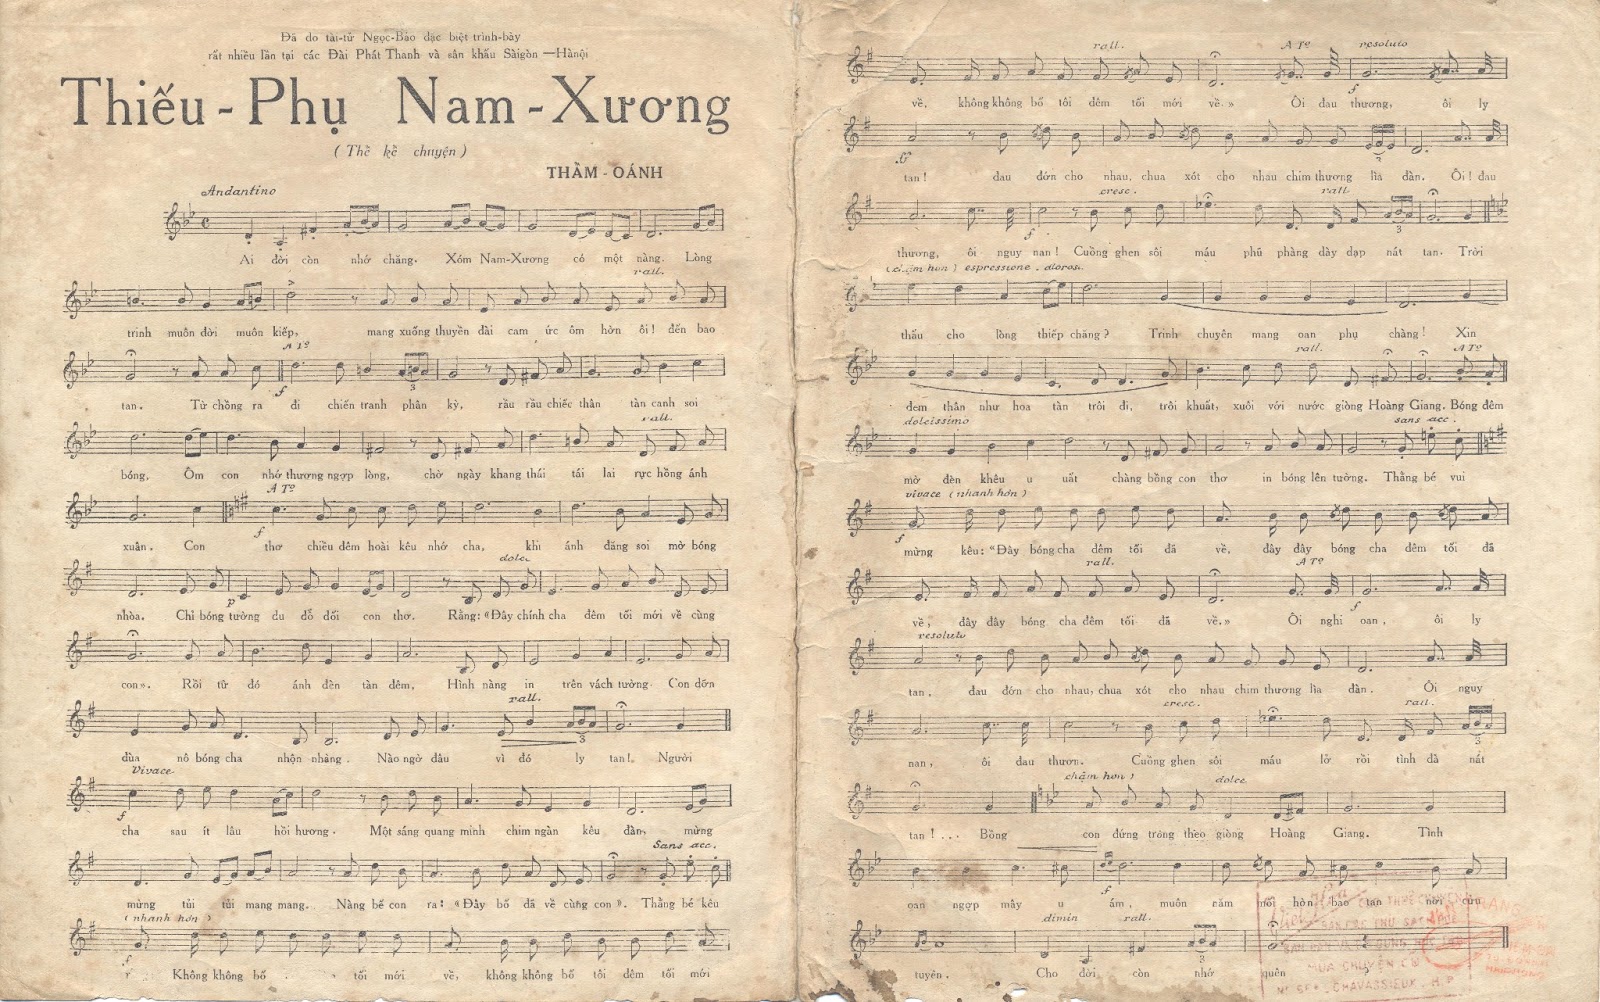 Đã do tài-tử Ngọc-Bảo đặc biệt trình-bày
rất nhiều lần tại các Đài Phát Thanh và sân khấu Sàigòn — Hànội
Thiếu-Phụ Nam-Xương
(Thể kể chuyện)
THẨM-OÁNH
Andantino
Ai đời còn nhớ chăng. Xóm Nam-Xương có một nàng. Lòng
rall.
trinh muôn đời muôn kiếp, mang xuống thuyền đài cam ức ôm hờn ôi! đến bao
A Tº
tan. Từ chồng ra đi chiến tranh phân kỳ, rầu rầu chiếc thân tàn canh soi
rall.
bóng, Ôm con nhớ thương ngợp lòng, chờ ngày khang thái tái lai rực hồng ánh
A Tº
xuân. Con thơ chiều đêm hoài kêu nhớ cha, khi ánh đăng soi mờ bóng
dolce
nhòa. Chỉ bóng tường du dỗ dối con thơ. Rằng: «Đây chính cha đêm tối mới về cùng
con». Rồi từ đó ánh đèn tàn đêm, Hình nàng in trên vách tường. Con dỡn
rall.
đùa nô bóng cha nhộn nhàng. Nào ngờ đâu vì đó ly tan!. Người
Vivace
cha sau ít lâu hồi hương. Một sáng quang minh chim ngàn kêu đàn, mừng
Sans acc.
mừng tủi tủi mang mang. Nàng bế con ra: «Đây bố đã về cùng con». Thằng bé kêu
(nhanh hơn)
Không không bố tối mới về, không không bố tôi đêm tối mới
rall. A Tº resoluto
về, không không bố tôi đêm tối mới về.» Ôi đau thương, ôi ly
tan! đau đớn cho nhau, chua xót cho nhau chim thương lìa đàn. Ôi! đau
cresc. rall
thương, ôi nguy nan! Cuồng ghen sôi máu phũ phàng dày đạp nát tan. Trời
(chậm hơn) espressione . doloroso.
thấu cho lòng thiếp chăng? Trinh chuyên mang oan phụ chàng! Xin
rall. A Tº
đem thân như hoa tàn trôi đi, trôi khuất, xuôi với nước giòng Hoàng Giang. Bóng đêm
dolcissimo sans acc.
mờ đèn khêu u uất chàng bồng con thơ in bóng lên tường. Thằng bé vui
vivace (nhanh hơn)
mừng kêu: “Đây bóng cha đêm tối đã về, đây đây bóng cha đêm tối đã
rall. A Tº
về, đây đây bóng cha đêm tối đã về.» Ôi nghi oan, ôi ly
resoluto
tan. đau đớn cho nhau, chua xót cho nhau chim thương lìa đàn. Ôi nguy
cresc. rall.
nan, ôi đau thươn. Cuồng ghen sôi máu lở rồi tình đã nát
chậm hơn) dolce
tan!... Bồng con đứng trông theo giòng Hoàng Giang. Tình
oan ngợp mây u ám, muôn năm nỗi hờn bao tan nơi cửu
dimin rall.
tuyền. Cho đời còn nhớ quên
MUA CHUYỆN CŨ
CHAVASSIEUX . H.P